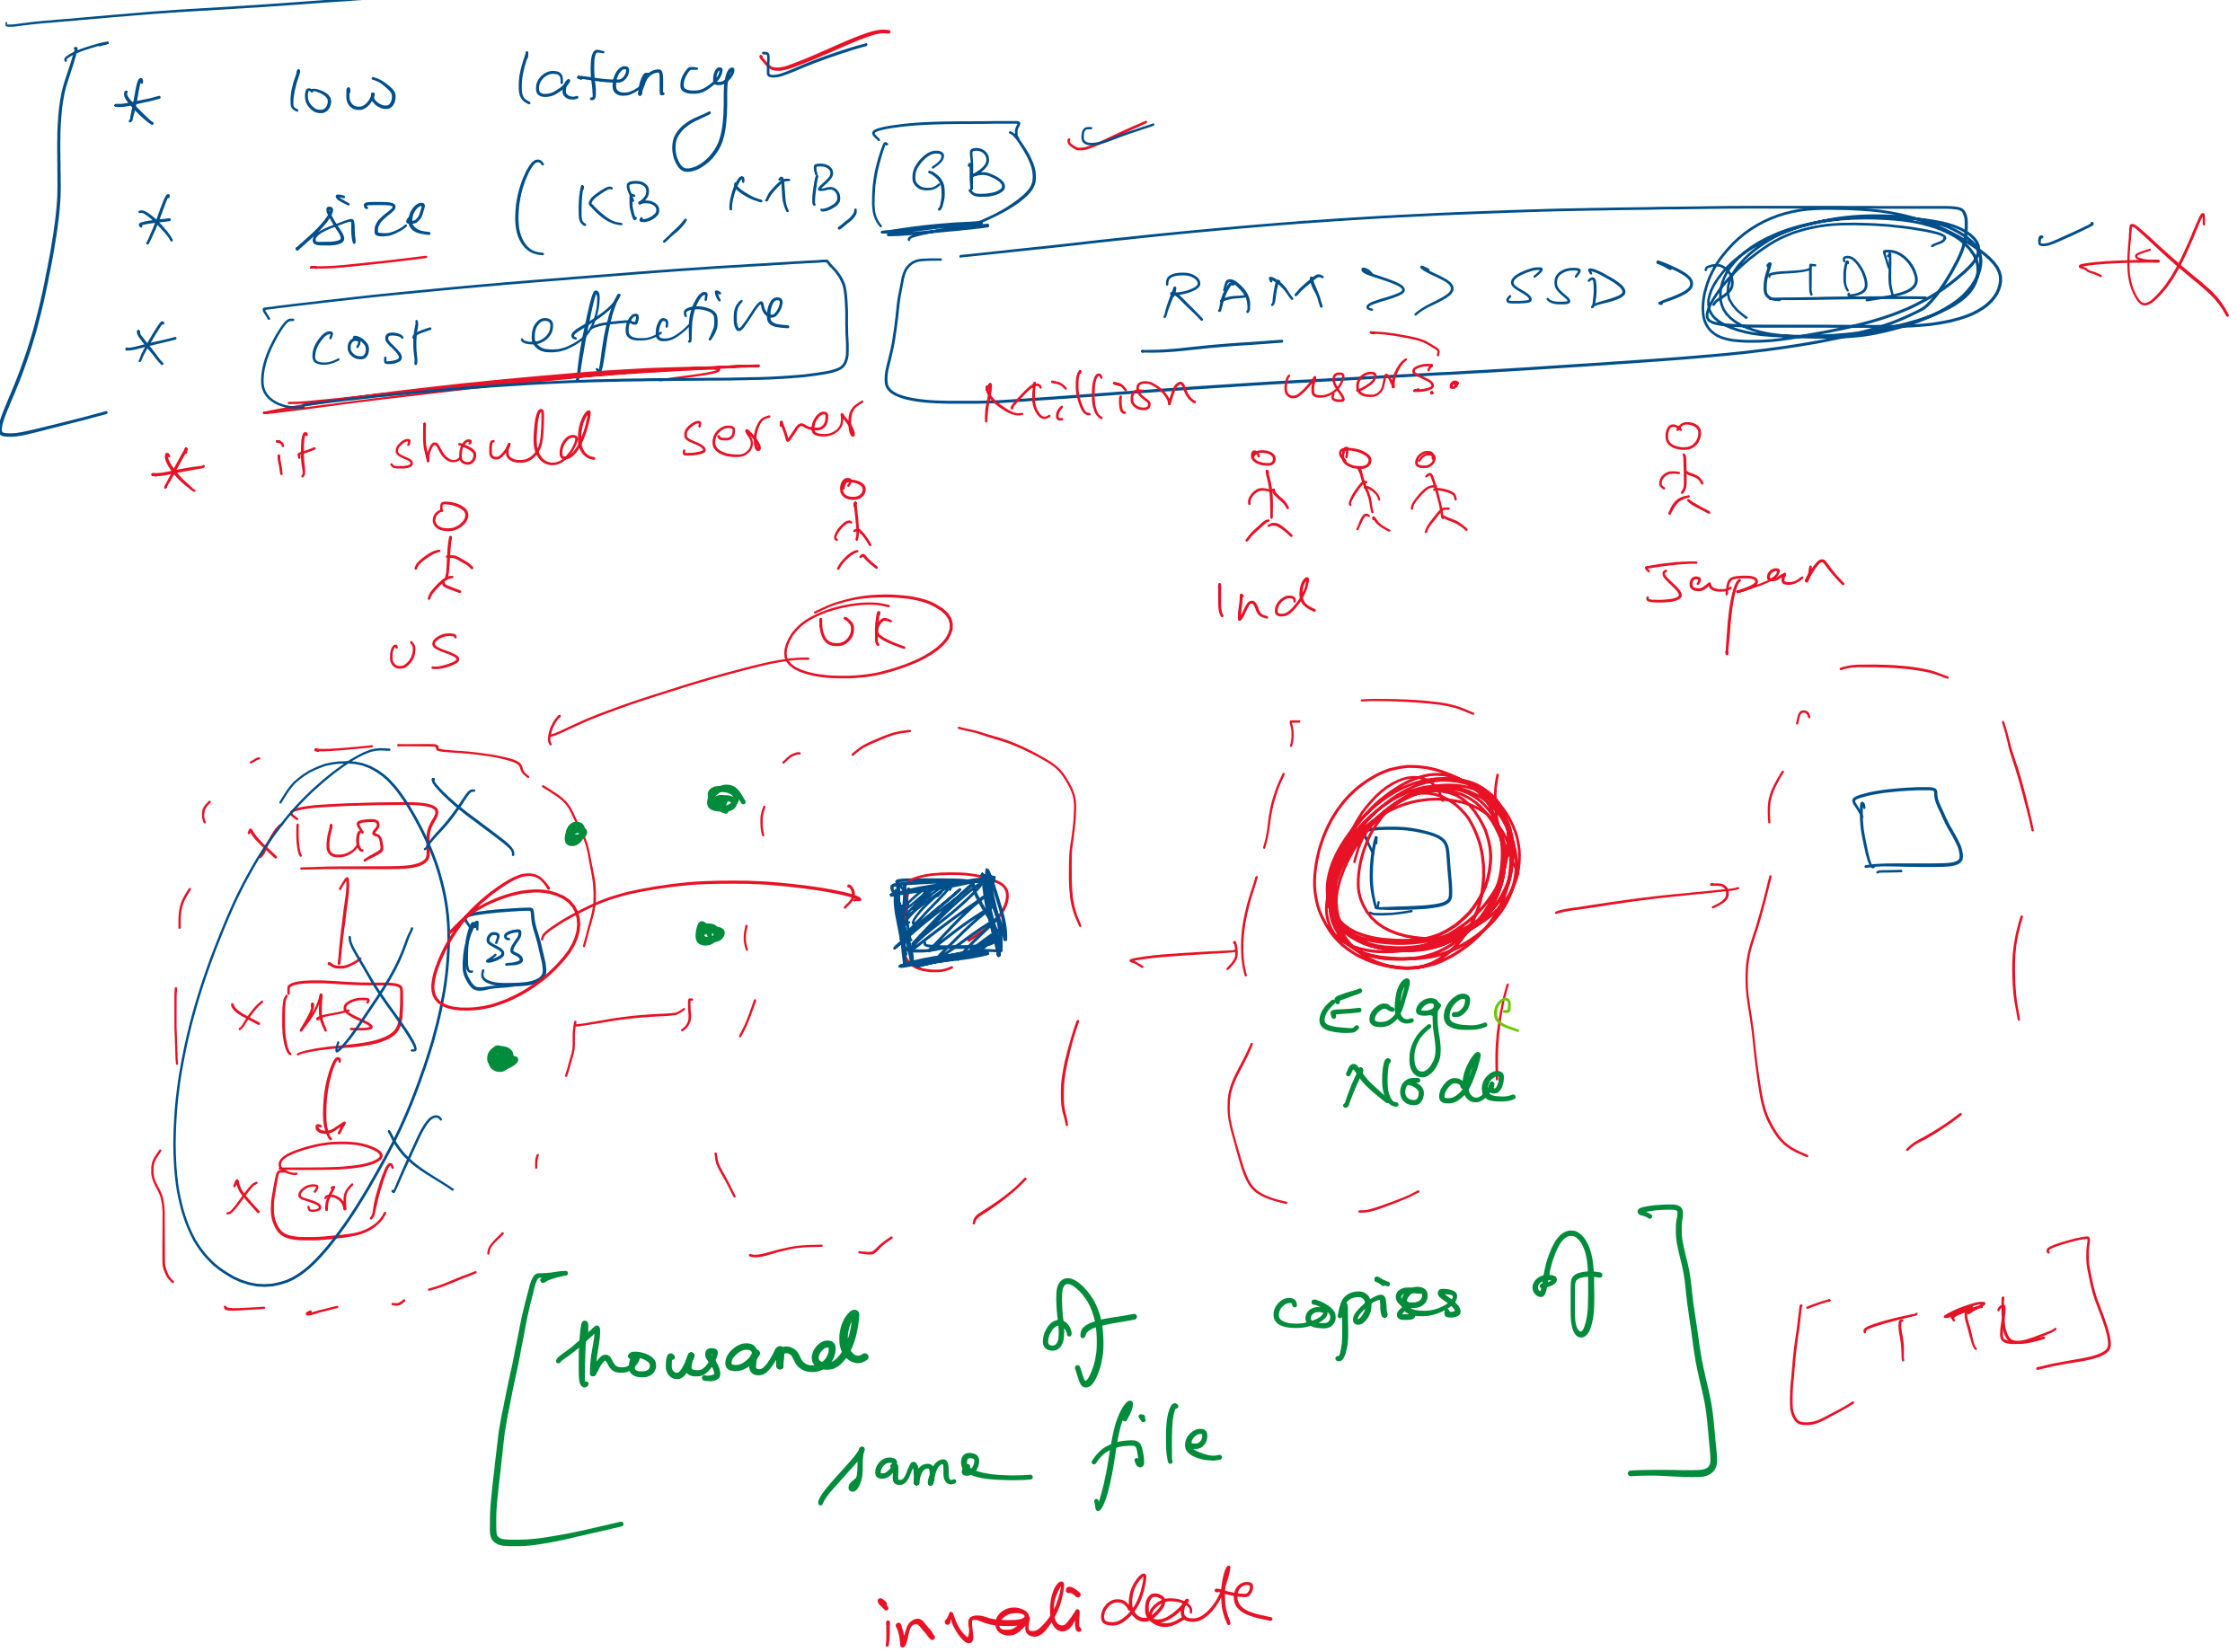 * low latency
* size (KB, MB, GB
* cost effective
RAM >> SSD > HDD
* it should serve Million users.
US
UK
Ind
Japan
LB
S3
Edge
Node
thousand of copies of
same file
[TTL]
invalidate